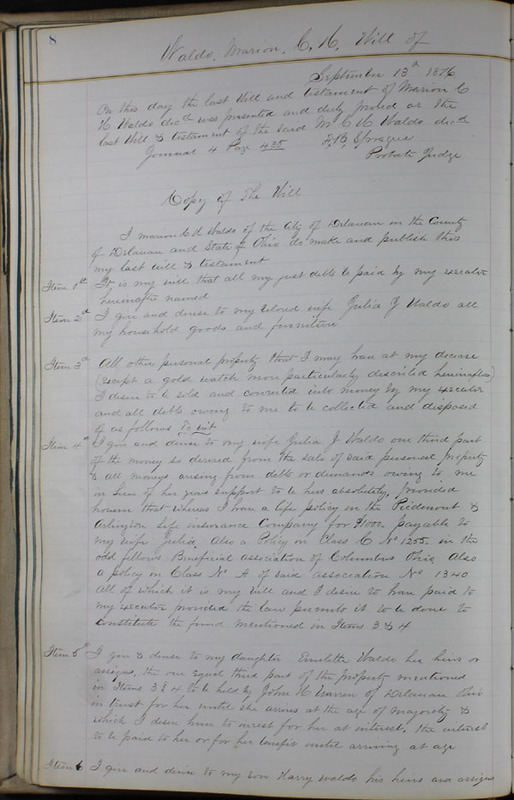 8
Waldo, Marion, C. H, Will of
September 13th 1876
On this day the last Will and testament of Marion C
H Waldo decd was presented and duly proved as the
last Will & testament of the said M C H Waldo decd
Journal 4 Page 425 F. B. Sprague
Probate Judge
Copy of The Will
I Marion C H Waldo of the City of Delaware in the County
of Delaware and State of Ohio do make and publish this
my last will & testament
Item 1st It is my will that all my just debts be paid by my executor
hereinafter named
Item 2d I give and devise to my beloved wife Julia J Waldo all
my household goods and furniture
Item 3d All other personal property that I may have at my decease
(except a gold watch more particularly described hereinafter)
I desire to be sold and converted into money by my executor
and all debts owing to me to be collected and disposed
of as follows To wit
Item 4th I give and devise to my wife Julia J Waldo one third part
of the money so derived from the sale of said personal property
& all moneys arising from debts or demands owing to me
in lieu of her years support to be hers absolutely, provided
however that whereas I have a life policy in the Piedmont &
Arlington Life insurance Company for $1000. payable to
my wife Julia Also a Policy in Class C No 1255 in the
odd fellows Beneficial association of Columbus Ohio Also
a policy in Class No A of said association No 1340
all of which it is my will and I desire to have paid to
my executor provided the law permits it to be done to
constitute the fund mentioned in Items 3 & 4
Item 5th I give & devise to my daughter Waldo her heirs or
assigns, the one equal third part of the property mentioned
in Items 3 & 4 to be held by John W Warren of Delaware Ohio
in trust for her until she arrives at the age of majority &
which I desire him to invest for her at interest, the interest
to be paid to her or for her benefit until arriving at age
Item 6 I give and devise to my son Harry Waldo his heirs and assigns